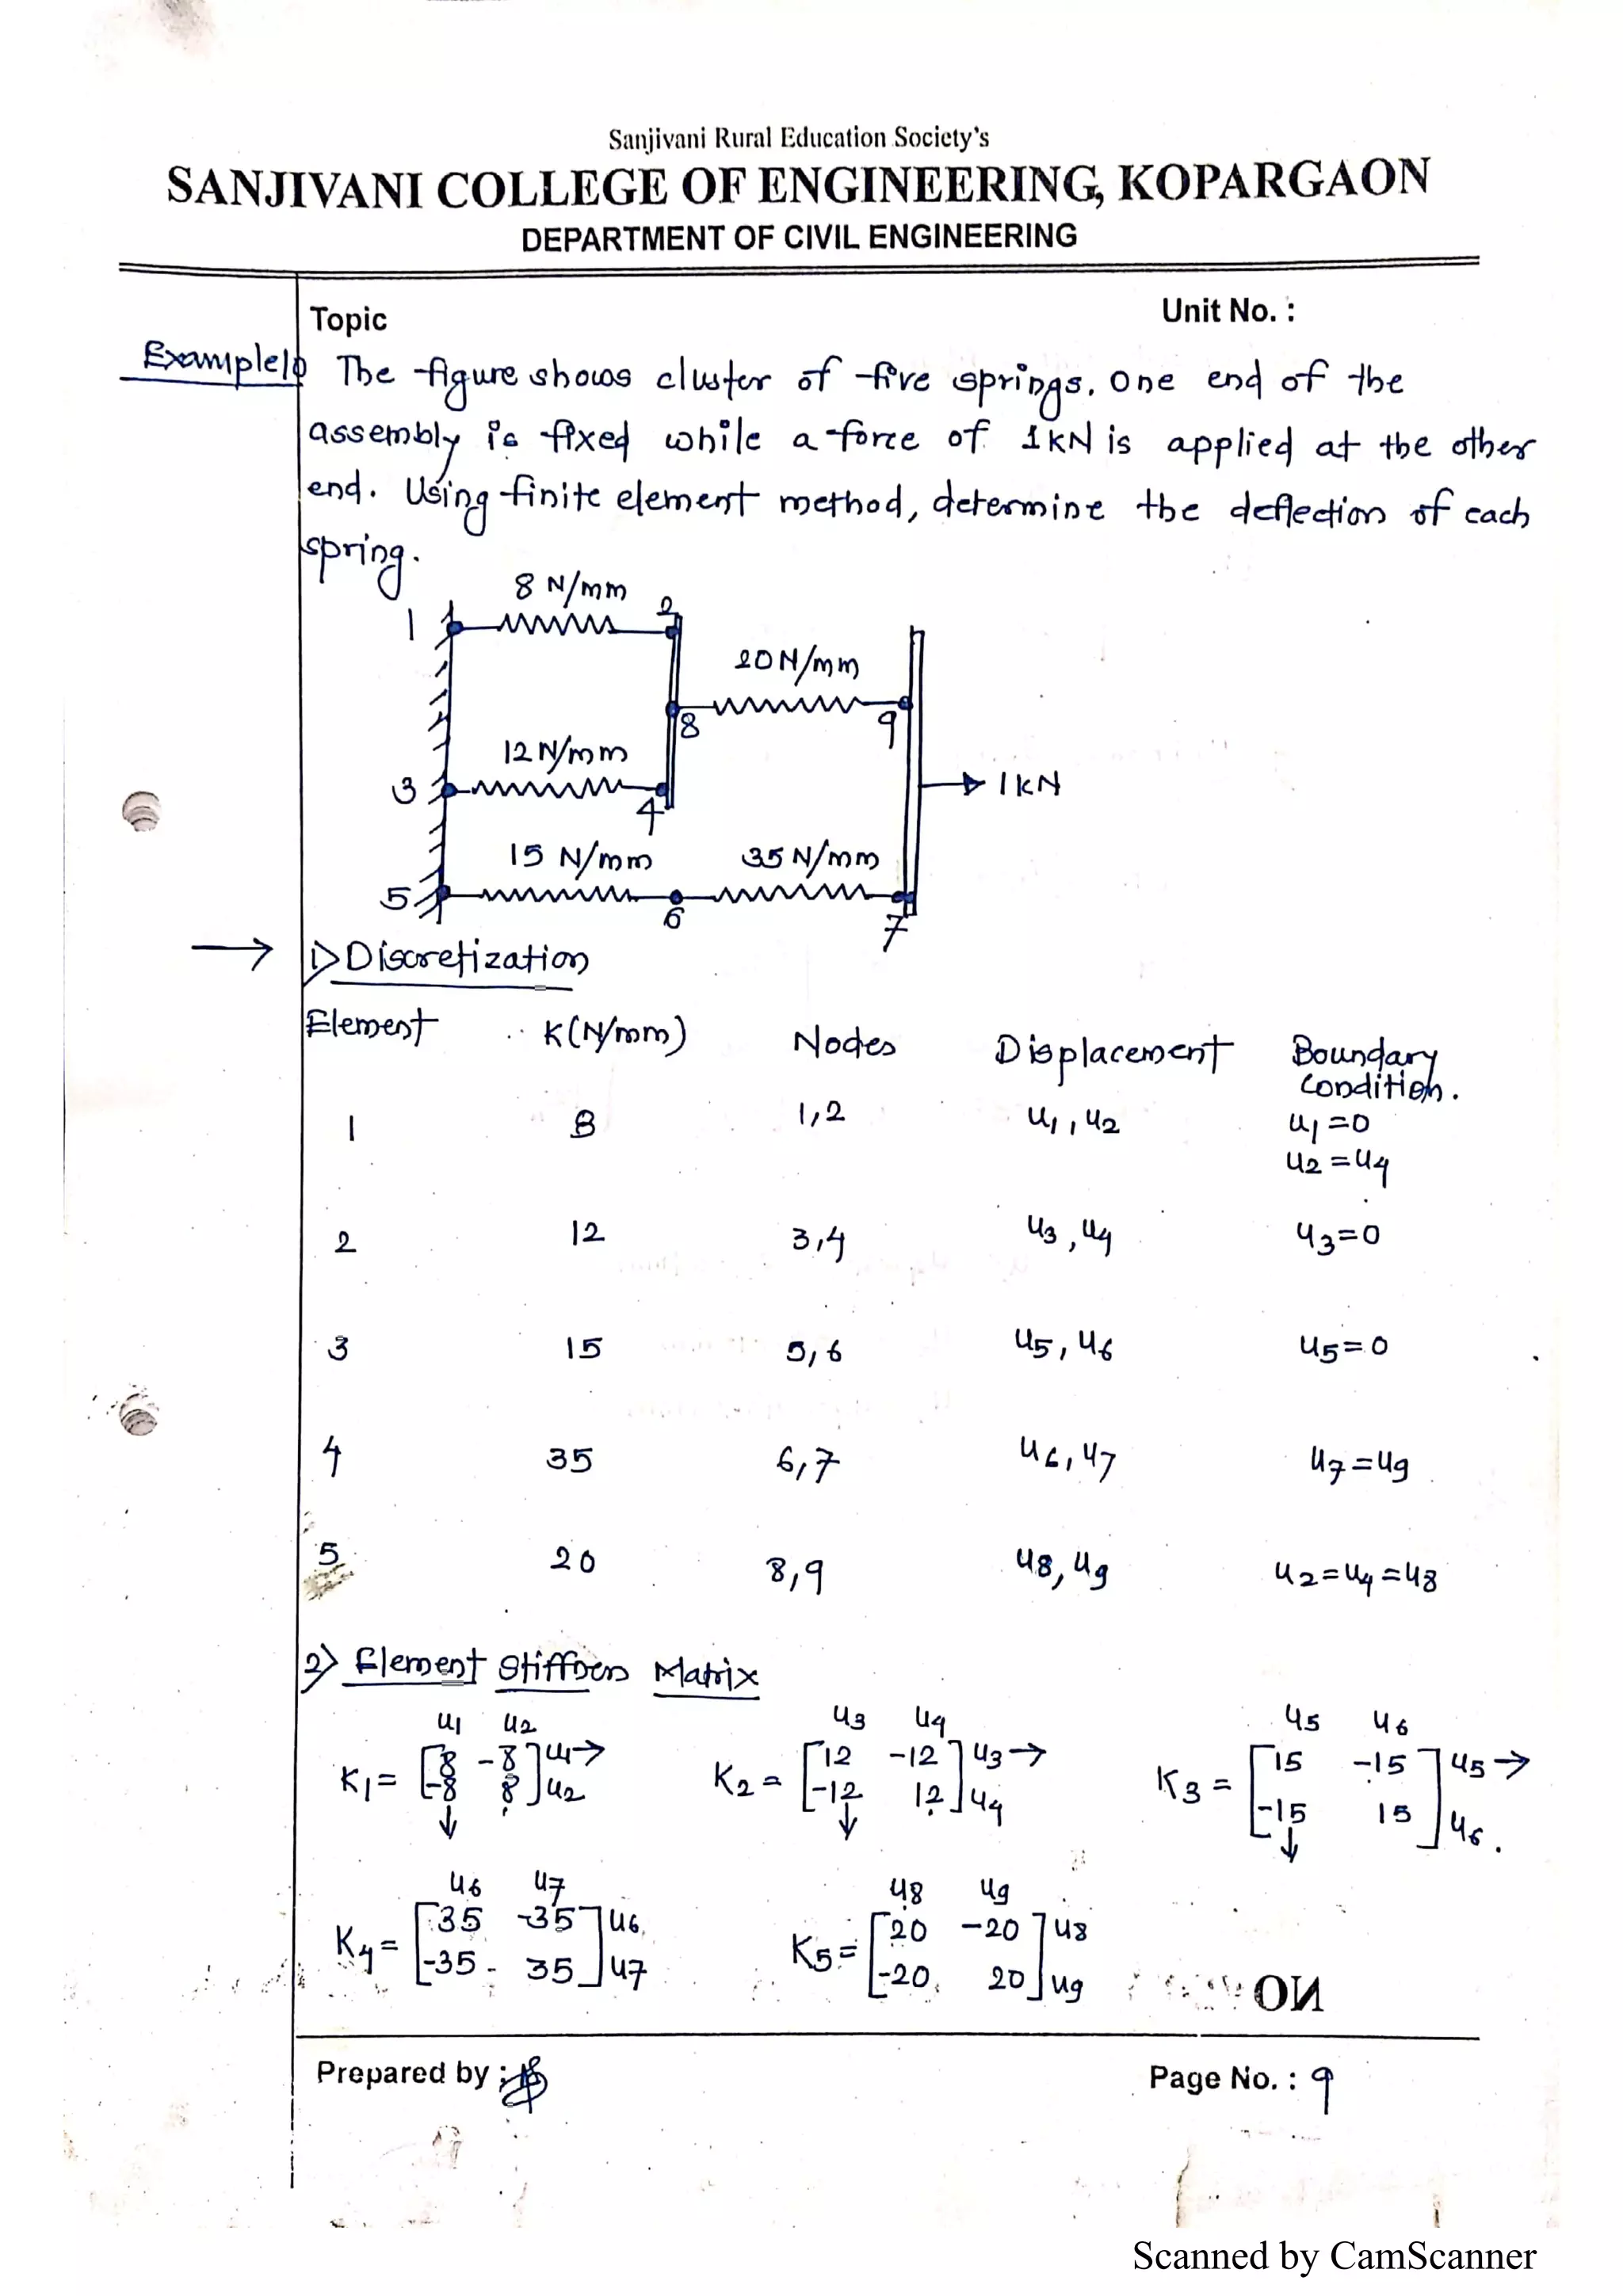 Sanjivani Rural Education Society's
SANJIVANI COLLEGE OF ENGINEERING, KOPARGAON
DEPARTMENT OF CIVIL ENGINEERING
Topic Unit No. :
Example The figure shows cluster of five springs. One end of the
assembly is fixed while a force of 1kN is applied at the other
end. Using finite element method, determine the deflection of each
spring.
8 N/mm
1 2
20N/mm
8 9
12 N/mm
3 4
1kN
15 N/mm 35 N/mm
5 6 7
→ 1> Discretization
Element K(N/mm) Nodes Displacement Boundary
Condition.
1 8 1,2 u1, u2 u1=0
u2=u4
2 12 3,4 u3, u4 u3=0
3 15 5,6 u5, u6 u5=0
4 35 6,7 u6, u7 u7=u9
5 20 8,9 u8, u9 u2=u4=u8
2> Element Stiffness Matrix
u1 u2 u3 u4 u5 u6
K1= [8 -8] u1→ K2= [12 -12] u3→ K3= [15 -15] u5→
[-8 8] u2 [-12 12] u4 [-15 15] u6.
↓ ↓ ↓
u6 u7 u8 u9
K4= [35 -35] u6 K5= [20 -20] u8
[-35 35] u7 [-20 20] u9
Prepared by : Page No. : 9
Scanned by CamScanner